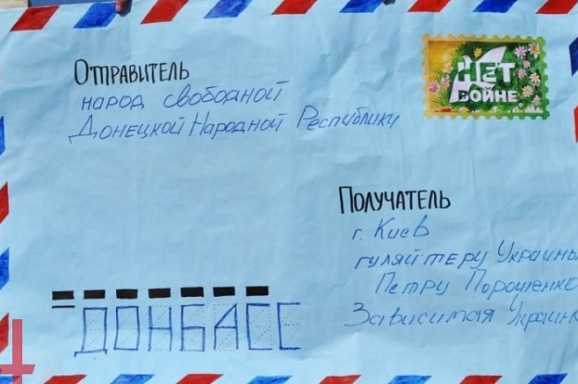 Отправитель
народ свободной
Донецкой Народной Республики
НЕТ
ВОЙНЕ
Получатель
г. Киев
гуляйтеру Украины
Петру Порошенко
Зависимая Украин
ДОНБАСС